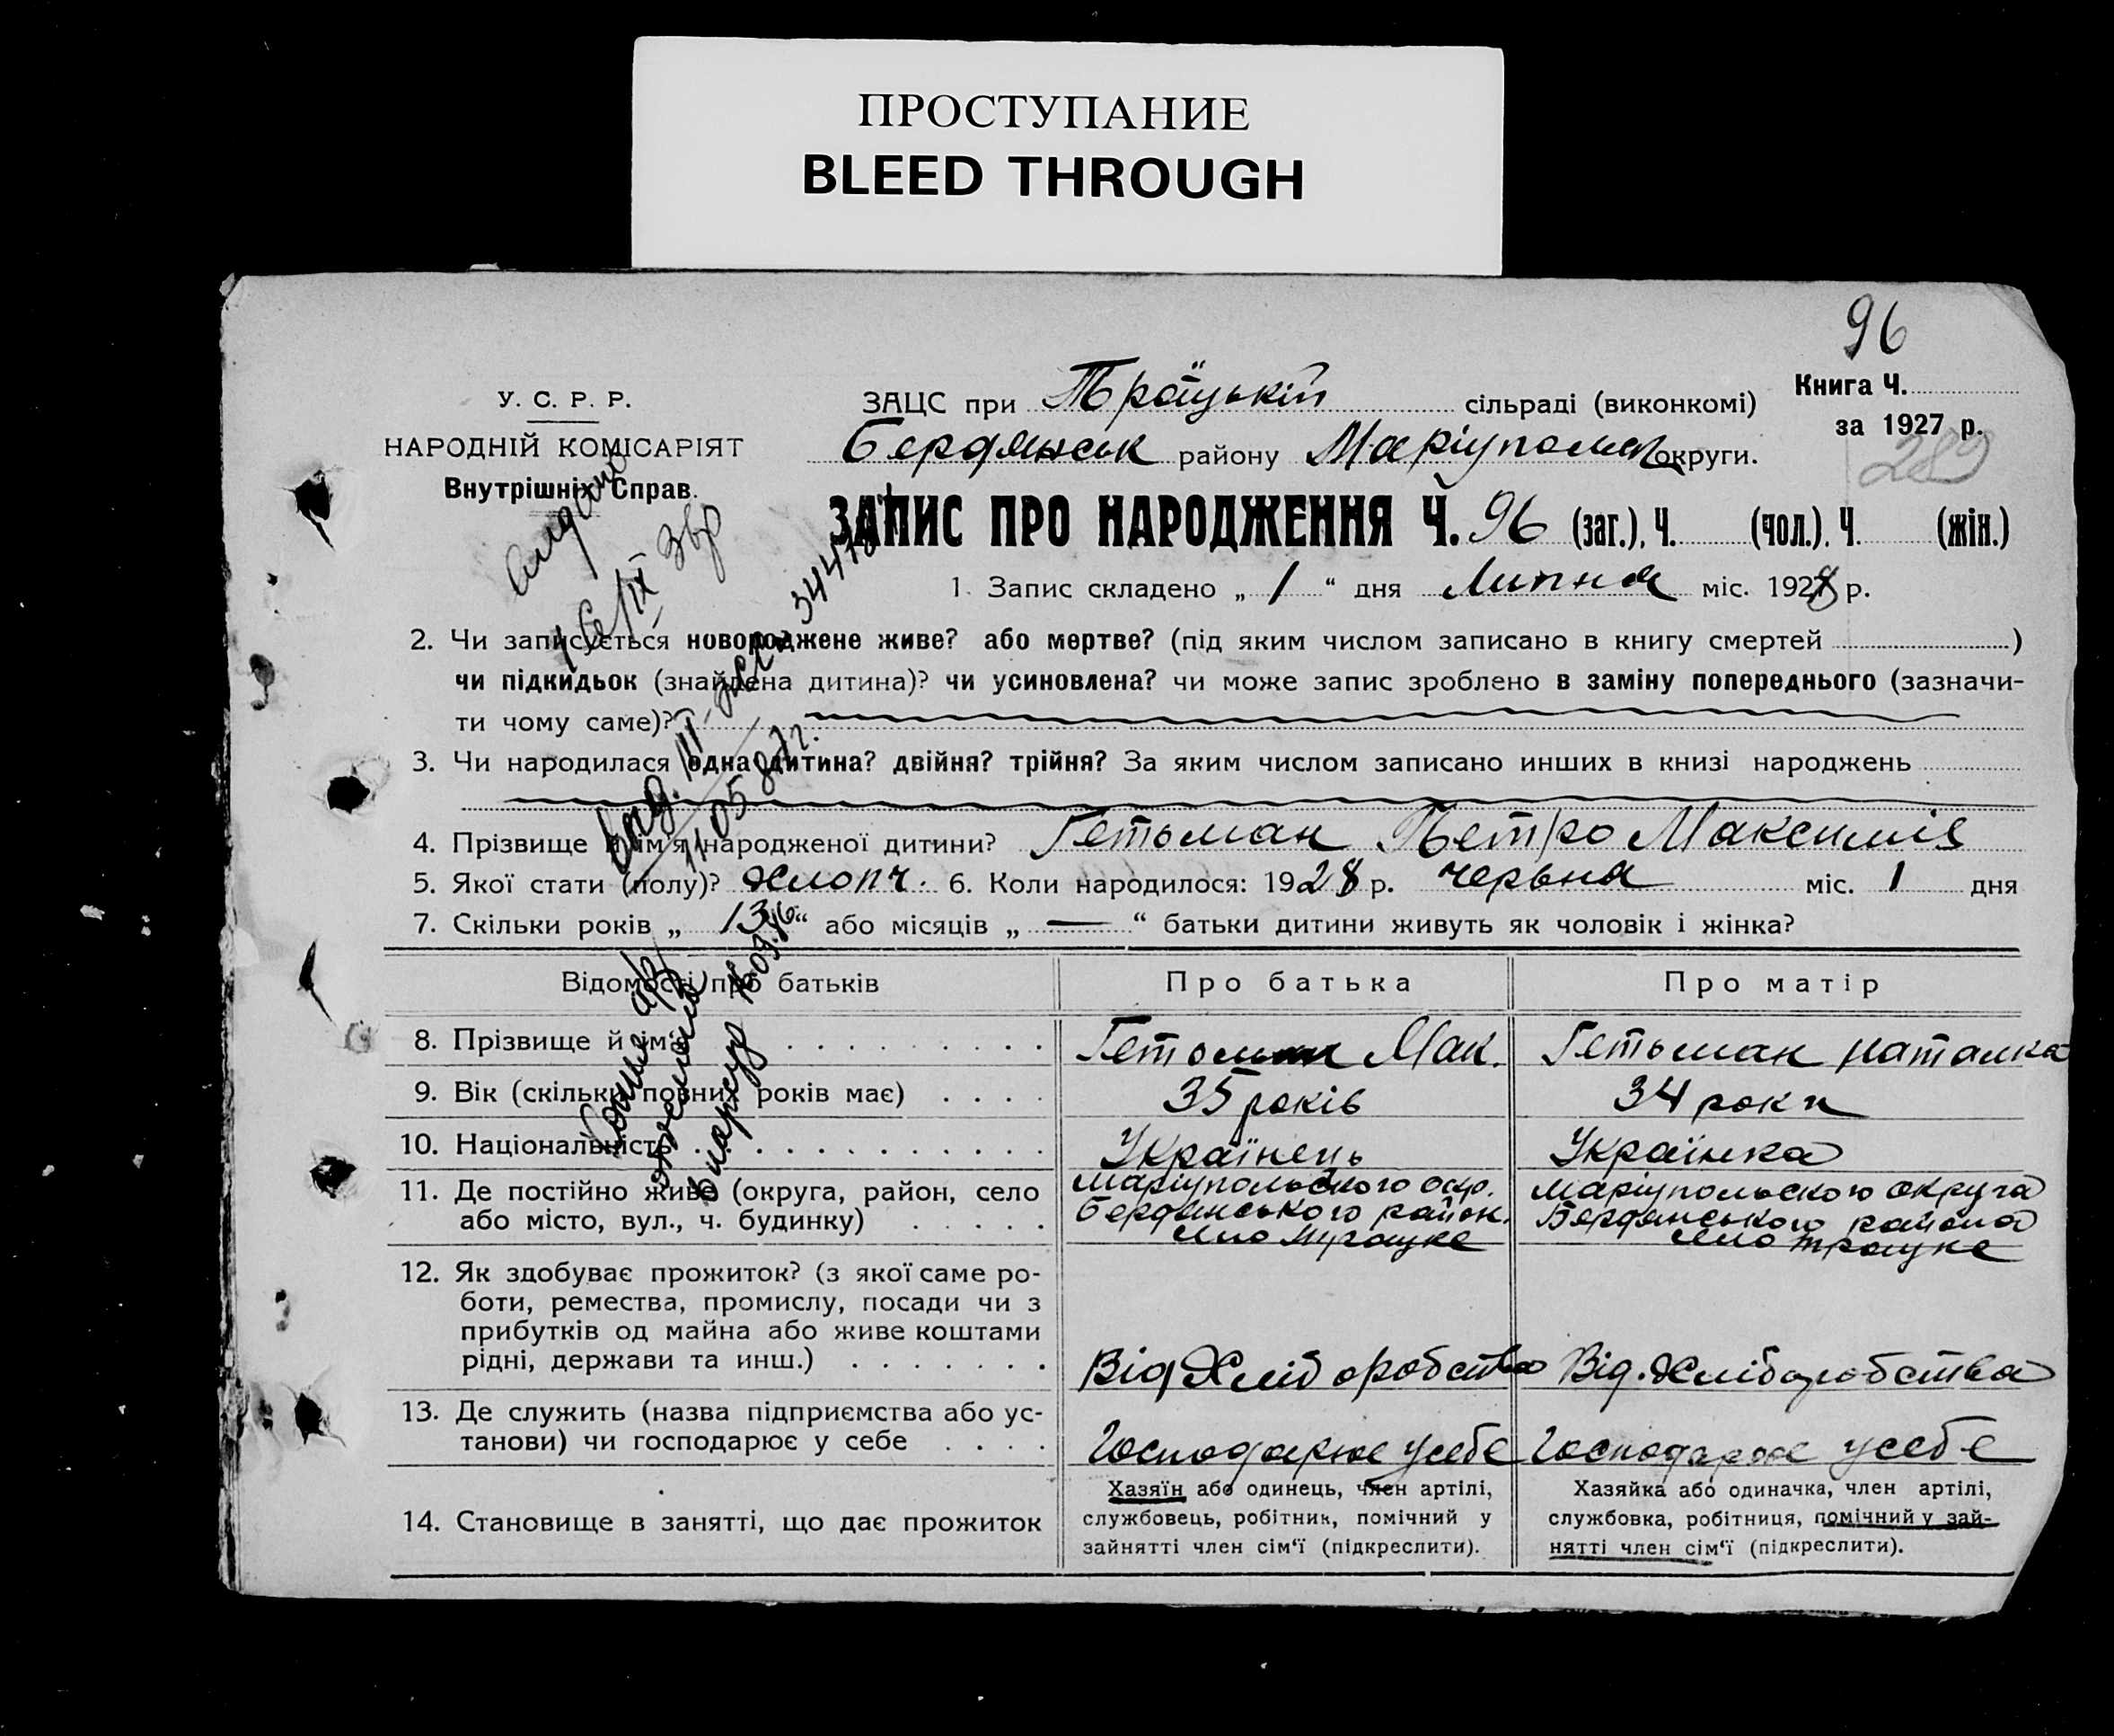 ПРОСТУПАНИЕ
BLEED THROUGH
96
У. С. Р. Р.
НАРОДНІЙ КОМІСАРІЯТ
Внутрішніх Справ.
ЗАЦС при Троїцькій сільраді (виконкомі)
Бердянськ району Маріуполь округи.
Книга Ч.
за 1927 р.
289
ЗАПИС ПРО НАРОДЖЕННЯ Ч. 96 (заг.), Ч. (чол.), Ч. (жін.)
1. Запис складено „ 1 “ дня Липня міс. 1928 р.
2. Чи записується новороджене живе? або мертве? (під яким числом записано в книгу смертей )
чи підкидьок (знайдена дитина)? чи усиновлена? чи може запис зроблено в заміну попереднього (зазначи-
ти чому саме)?
3. Чи народилася одна дитина? двійня? трійня? За яким числом записано инших в книзі народжень
4. Прізвище й ім'я народженої дитини? Гетьман Петро Максимів
5. Якої стати (полу)? Хлопч. 6. Коли народилося: 1928 р. червня міс. 1 дня
7. Скільки років „ 13 “ або місяців „ — “ батьки дитини живуть як чоловік і жінка?
Відомості про батьків Про батька Про матір
8. Прізвище й ім'я Гетьман Мак. Гетьман Наталка
9. Вік (скільки повних років має) 35 років 34 роки
10. Національність Українець Українка
11. Де постійно живе (округа, район, село
або місто, вул., ч. будинку)
Маріупольского окр.
Бердянського район.
Маріупольского округа
Бердянського района
12. Як здобуває прожиток? (з якої саме ро-
боти, ремества, промислу, посади чи з
прибутків од майна або живе коштами
рідні, держави та инш.)
Від Хліборобства Від. Хліборобства
13. Де служить (назва підприємства або ус-
танови) чи господарює у себе
Господарює усебе Господарює усебе
14. Становище в занятті, що дає прожиток
Хазяїн або одинець, член артілі,
службовець, робітник, помічний у
зайнятті член сім'ї (підкреслити).
Хазяйка або одиначка, член артілі,
службовка, робітниця, помічний у зай-
нятті член сім'ї (підкреслити).